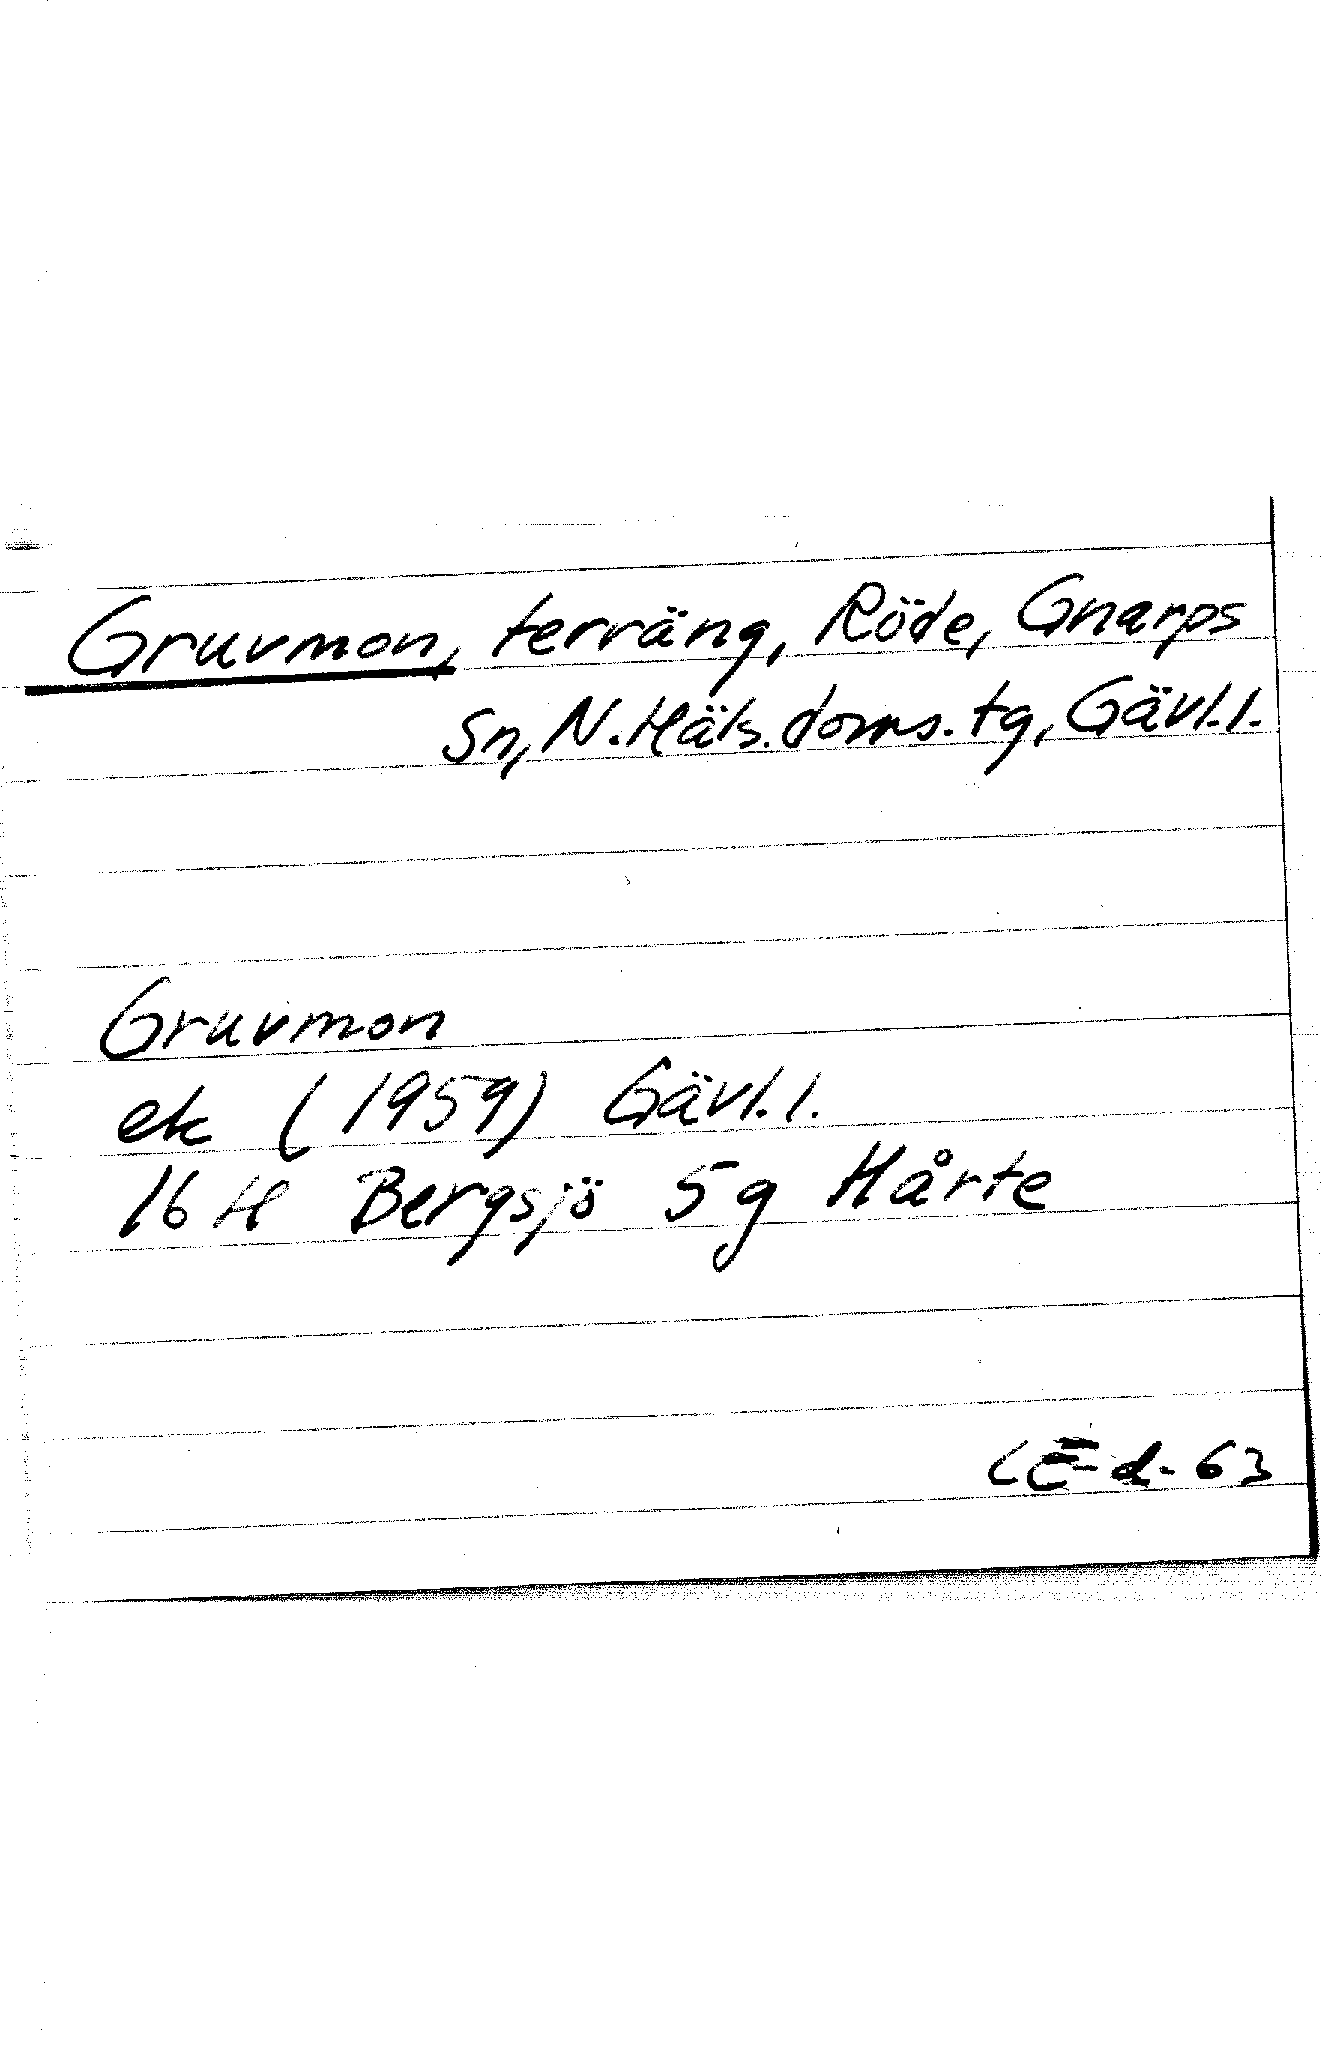 Gruvmon, terräng, Röde, Gnarps
Sn, N. Häls. doms. tg, Gävl. l.
Gruvmon
ek (1959) Gävl. l.
16 H Bergsjö 5 g Hårte
63